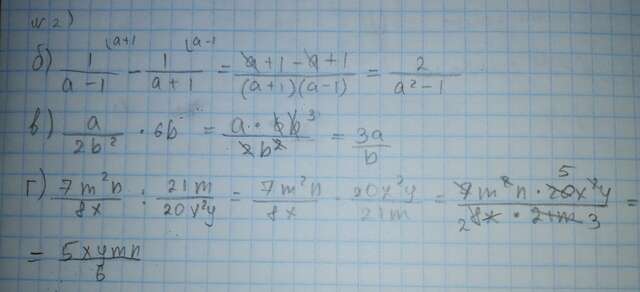 №2)
б) 1/(a-1) ⌊a+1 - 1/(a+1) ⌊a-1 = (a+1-a+1)/((a+1)(a-1)) = 2/(a²-1)
в) a/(2b²) · 6b = (a · 6b 3)/(2b²) = 3a/b
г) 7m²n/(8x) : 21m/(20x²y) = 7m²n/(8x) · 20x²y/(21m) = (7m²n · 20x²y 5)/(2 8x · 21m 3) =
= 5xymn/6